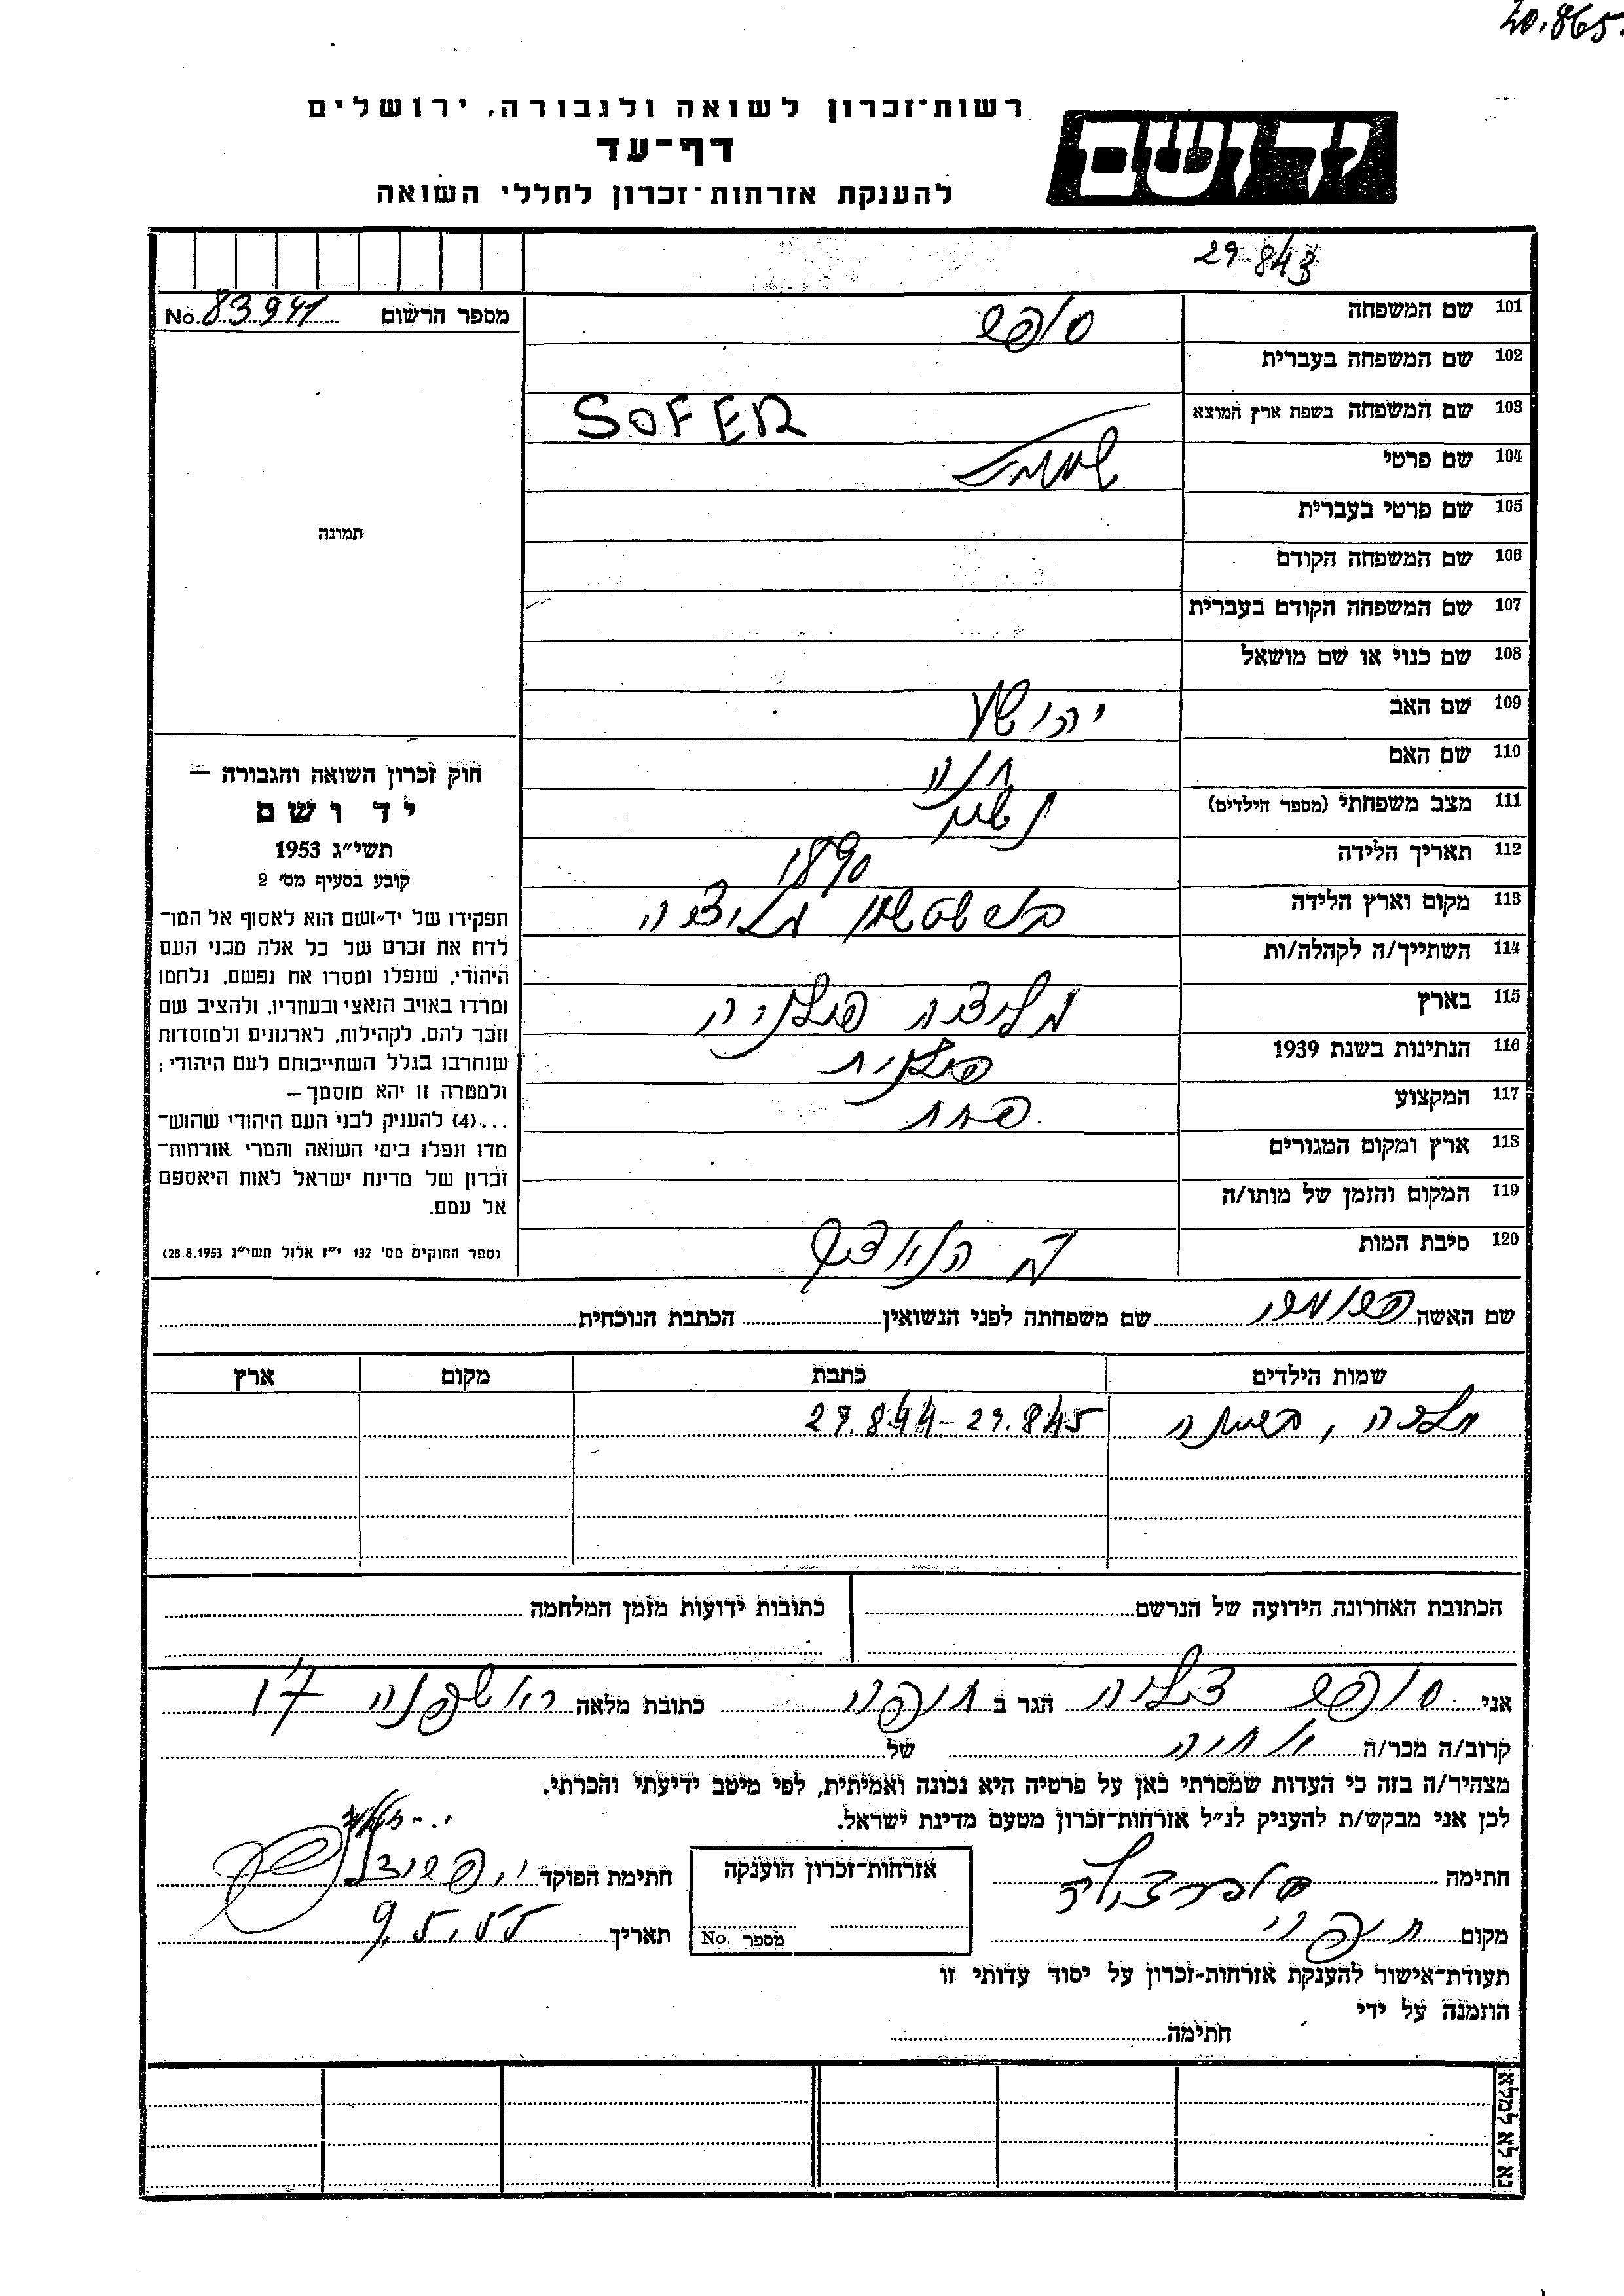 20.865
רשות־זכרון לשואה ולגבורה, ירושלים
יד ושם
דף־עד
להענקת אזרחות־זכרון לחללי השואה
29.843
מספר הרשום No. 83941
תמונה
101 שם המשפחה סופר
102 שם המשפחה בעברית
103 שם המשפחה בשפת ארץ המוצא SOFER
104 שם פרטי
105 שם פרטי בעברית
106 שם המשפחה הקודם
107 שם המשפחה הקודם בעברית
108 שם כנוי או שם מושאל
109 שם האב יהושע
110 שם האם חנה
111 מצב משפחתי (מספר הילדים) נשוי
112 תאריך הלידה 1890
113 מקום וארץ הלידה
114 השתייך/ה לקהלה/ות
115 בארץ פולניה
116 הנתינות בשנת 1939 פולנית
117 המקצוע פחח
118 ארץ ומקום המגורים
119 המקום והזמן של מותו/ה
120 סיבת המות
חוק זכרון השואה והגבורה —
יד ושם
תשי״ג 1953
קובע בסעיף מס׳ 2
תפקידו של יד־ושם הוא לאסוף אל המו־
לדת את זכרם של כל אלה מבני העם
היהודי, שנפלו ומסרו את נפשם, נלחמו
ומרדו באויב הנאצי ובעוזריו, ולהציב שם
וזכר להם, לקהילות, לארגונים ולמוסדות
שנחרבו בגלל השתייכותם לעם היהודי;
ולמטרה זו יהא מוסמך —
...(4) להעניק לבני העם היהודי שהוש־
מדו ונפלו בימי השואה והמרי אזרחות־
זכרון של מדינת ישראל לאות היאספם
אל עמם.
(ספר החוקים מס׳ 132 י״ז אלול תשי״ג 28.8.1953)
שם האשה שם משפחתה לפני הנשואין הכתבת הנוכחית
שמות הילדים כתבת מקום ארץ
29.844-29.845
הכתובת האחרונה הידועה של הנרשם כתובות ידועות מזמן המלחמה
אני סופר צילה הגר ב חיפה כתובת מלאה 17
קרוב/ה מכר/ה של
מצהיר/ה בזה כי העדות שמסרתי כאן על פרטיה היא נכונה ואמיתית, לפי מיטב ידיעתי והכרתי.
לכן אני מבקש/ת להעניק לנ״ל אזרחות־זכרון מטעם מדינת ישראל.
חתימה
מקום חיפה
אזרחות־זכרון הוענקה
מספר No.
חתימת הפוקד
תאריך 9.5.55
תעודת־אישור להענקת אזרחות־זכרון על יסוד עדותי זו
הוזמנה על ידי
חתימה
נא לא למלא